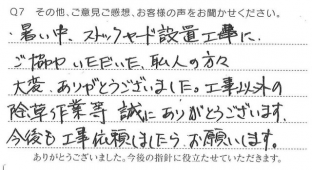 Q7 その他、ご意見ご感想、お客様の声をお聞かせください。
・暑い中、ストックヤード設置工事に
ご協力いただいた、職人の方々
大変、ありがとうございました。工事以外の
除草作業等 誠にありがとうございます。
今後も工事依頼しましたら、お願いします。
ありがとうございました。今後の指針に役立たせていただきます。